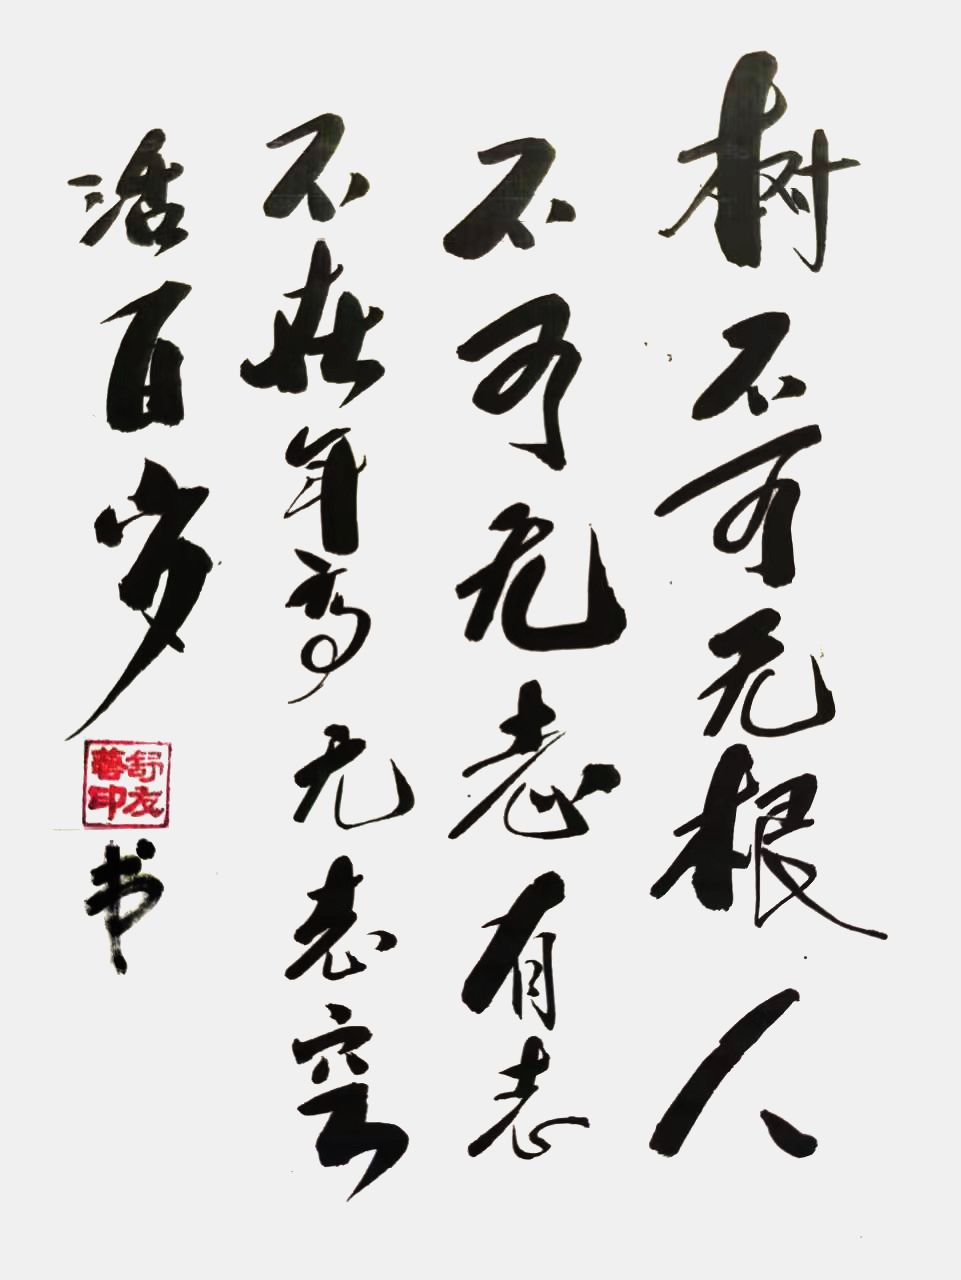 树不可无根人
不可无志有志
不在年高无志空
活百岁
舒友
善印
书